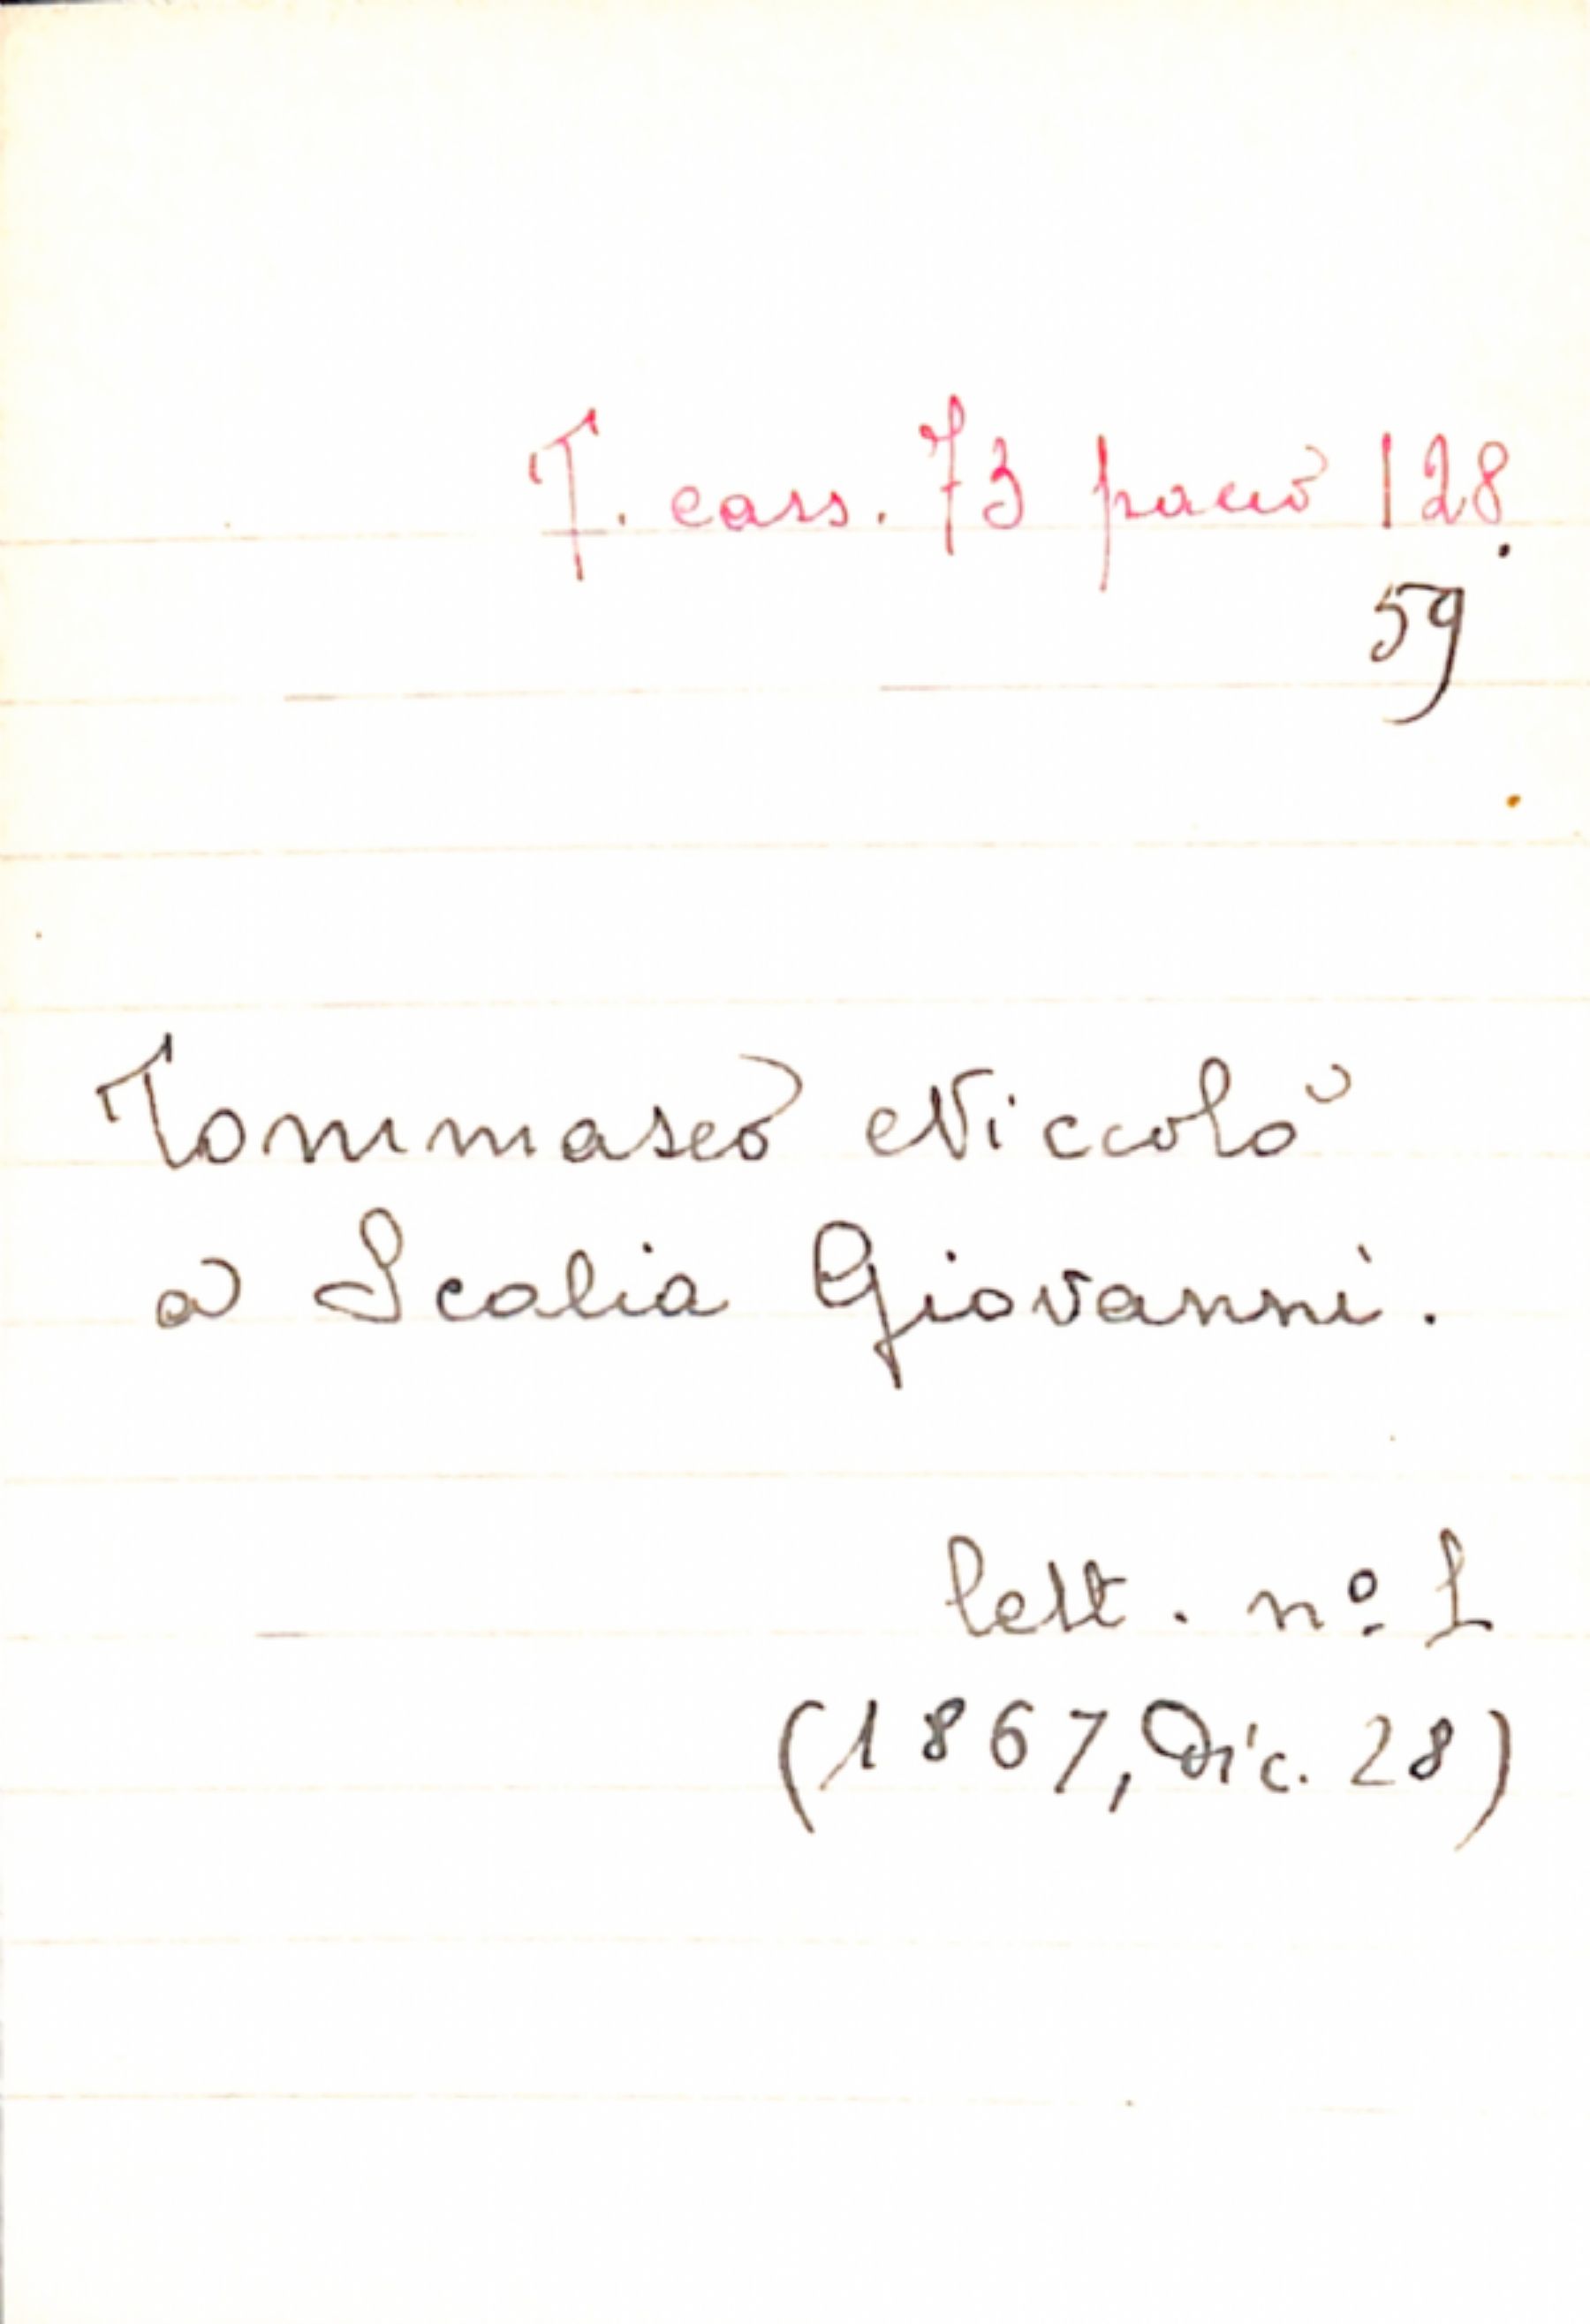 T. cass. 73 pacco 128.
59
Tommaseo Niccolò
a Scalia Giovanni.
lett. nº 1
(1867, Dic. 28)